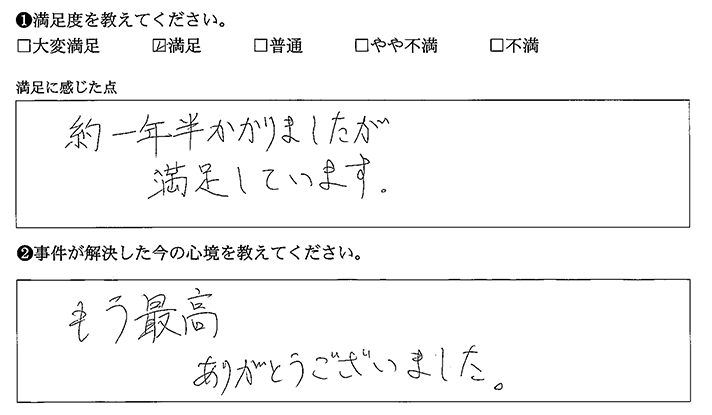 ❶満足度を教えてください。
□大変満足 ☑満足 □普通 □やや不満 □不満
満足に感じた点
約一年半かかりましたが
満足しています.
❷事件が解決した今の心境を教えてください。
もう最高
ありがとうございました。